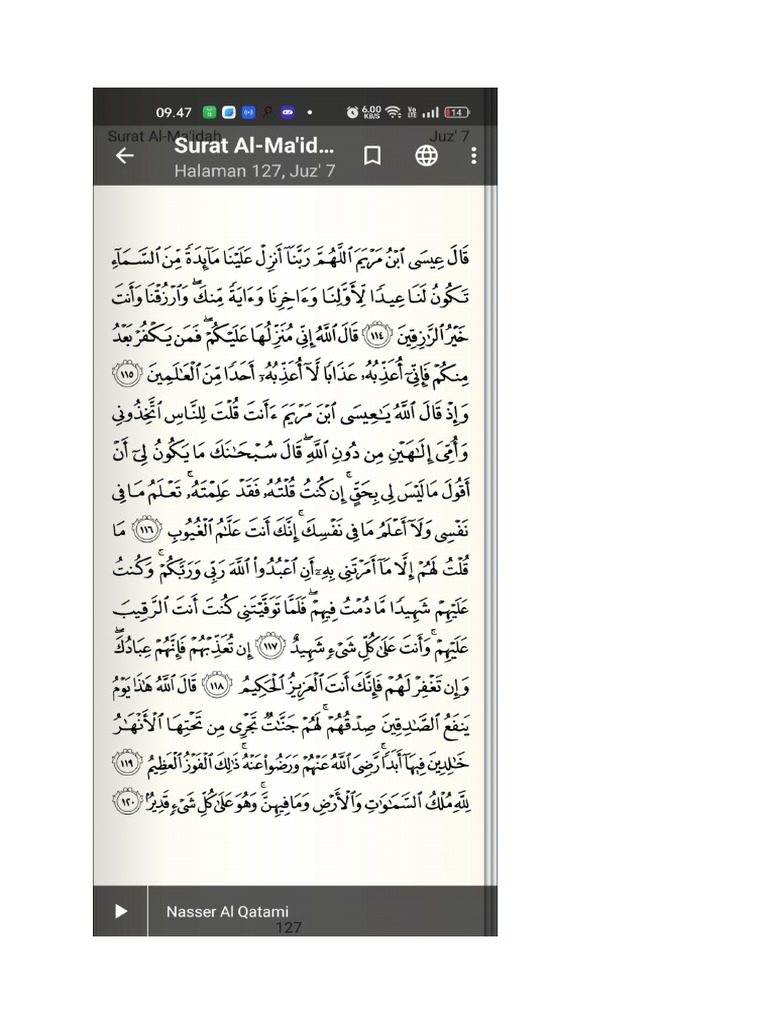 09.47 6.00 KB/S Vo LTE 14
Surat Al-Ma'idah Juz' 7
Surat Al-Ma'id...
Halaman 127, Juz' 7
قَالَ عِيسَى ٱبْنُ مَرْيَمَ ٱللَّهُمَّ رَبَّنَآ أَنزِلْ عَلَيْنَا مَآئِدَةً مِّنَ ٱلسَّمَآءِ
تَكُونُ لَنَا عِيدًا لِّأَوَّلِنَا وَءَاخِرِنَا وَءَايَةً مِّنكَ ۖ وَٱرْزُقْنَا وَأَنتَ
خَيْرُ ٱلرَّٰزِقِينَ ١١٤ قَالَ ٱللَّهُ إِنِّى مُنَزِّلُهَا عَلَيْكُمْ ۖ فَمَن يَكْفُرْ بَعْدُ
مِنكُمْ فَإِنِّىٓ أُعَذِّبُهُۥ عَذَابًا لَّآ أُعَذِّبُهُۥٓ أَحَدًا مِّنَ ٱلْعَٰلَمِينَ ١١٥
وَإِذْ قَالَ ٱللَّهُ يَٰعِيسَى ٱبْنَ مَرْيَمَ ءَأَنتَ قُلْتَ لِلنَّاسِ ٱتَّخِذُونِى
وَأُمِّىَ إِلَٰهَيْنِ مِن دُونِ ٱللَّهِ ۖ قَالَ سُبْحَٰنَكَ مَا يَكُونُ لِىٓ أَنْ
أَقُولَ مَا لَيْسَ لِى بِحَقٍّ ۚ إِن كُنتُ قُلْتُهُۥ فَقَدْ عَلِمْتَهُۥ ۚ تَعْلَمُ مَا فِى
نَفْسِى وَلَآ أَعْلَمُ مَا فِى نَفْسِكَ ۚ إِنَّكَ أَنتَ عَلَّٰمُ ٱلْغُيُوبِ ١١٦ مَا
قُلْتُ لَهُمْ إِلَّا مَآ أَمَرْتَنِى بِهِۦٓ أَنِ ٱعْبُدُوا۟ ٱللَّهَ رَبِّى وَرَبَّكُمْ ۚ وَكُنتُ
عَلَيْهِمْ شَهِيدًا مَّا دُمْتُ فِيهِمْ ۖ فَلَمَّا تَوَفَّيْتَنِى كُنتَ أَنتَ ٱلرَّقِيبَ
عَلَيْهِمْ ۚ وَأَنتَ عَلَىٰ كُلِّ شَىْءٍ شَهِيدٌ ١١٧ إِن تُعَذِّبْهُمْ فَإِنَّهُمْ عِبَادُكَ ۖ
وَإِن تَغْفِرْ لَهُمْ فَإِنَّكَ أَنتَ ٱلْعَزِيزُ ٱلْحَكِيمُ ١١٨ قَالَ ٱللَّهُ هَٰذَا يَوْمُ
يَنفَعُ ٱلصَّٰدِقِينَ صِدْقُهُمْ ۚ لَهُمْ جَنَّٰتٌ تَجْرِى مِن تَحْتِهَا ٱلْأَنْهَٰرُ
خَٰلِدِينَ فِيهَآ أَبَدًا ۚ رَّضِىَ ٱللَّهُ عَنْهُمْ وَرَضُوا۟ عَنْهُ ۚ ذَٰلِكَ ٱلْفَوْزُ ٱلْعَظِيمُ ١١٩
لِلَّهِ مُلْكُ ٱلسَّمَٰوَٰتِ وَٱلْأَرْضِ وَمَا فِيهِنَّ ۚ وَهُوَ عَلَىٰ كُلِّ شَىْءٍ قَدِيرٌۢ ١٢٠
Nasser Al Qatami
127